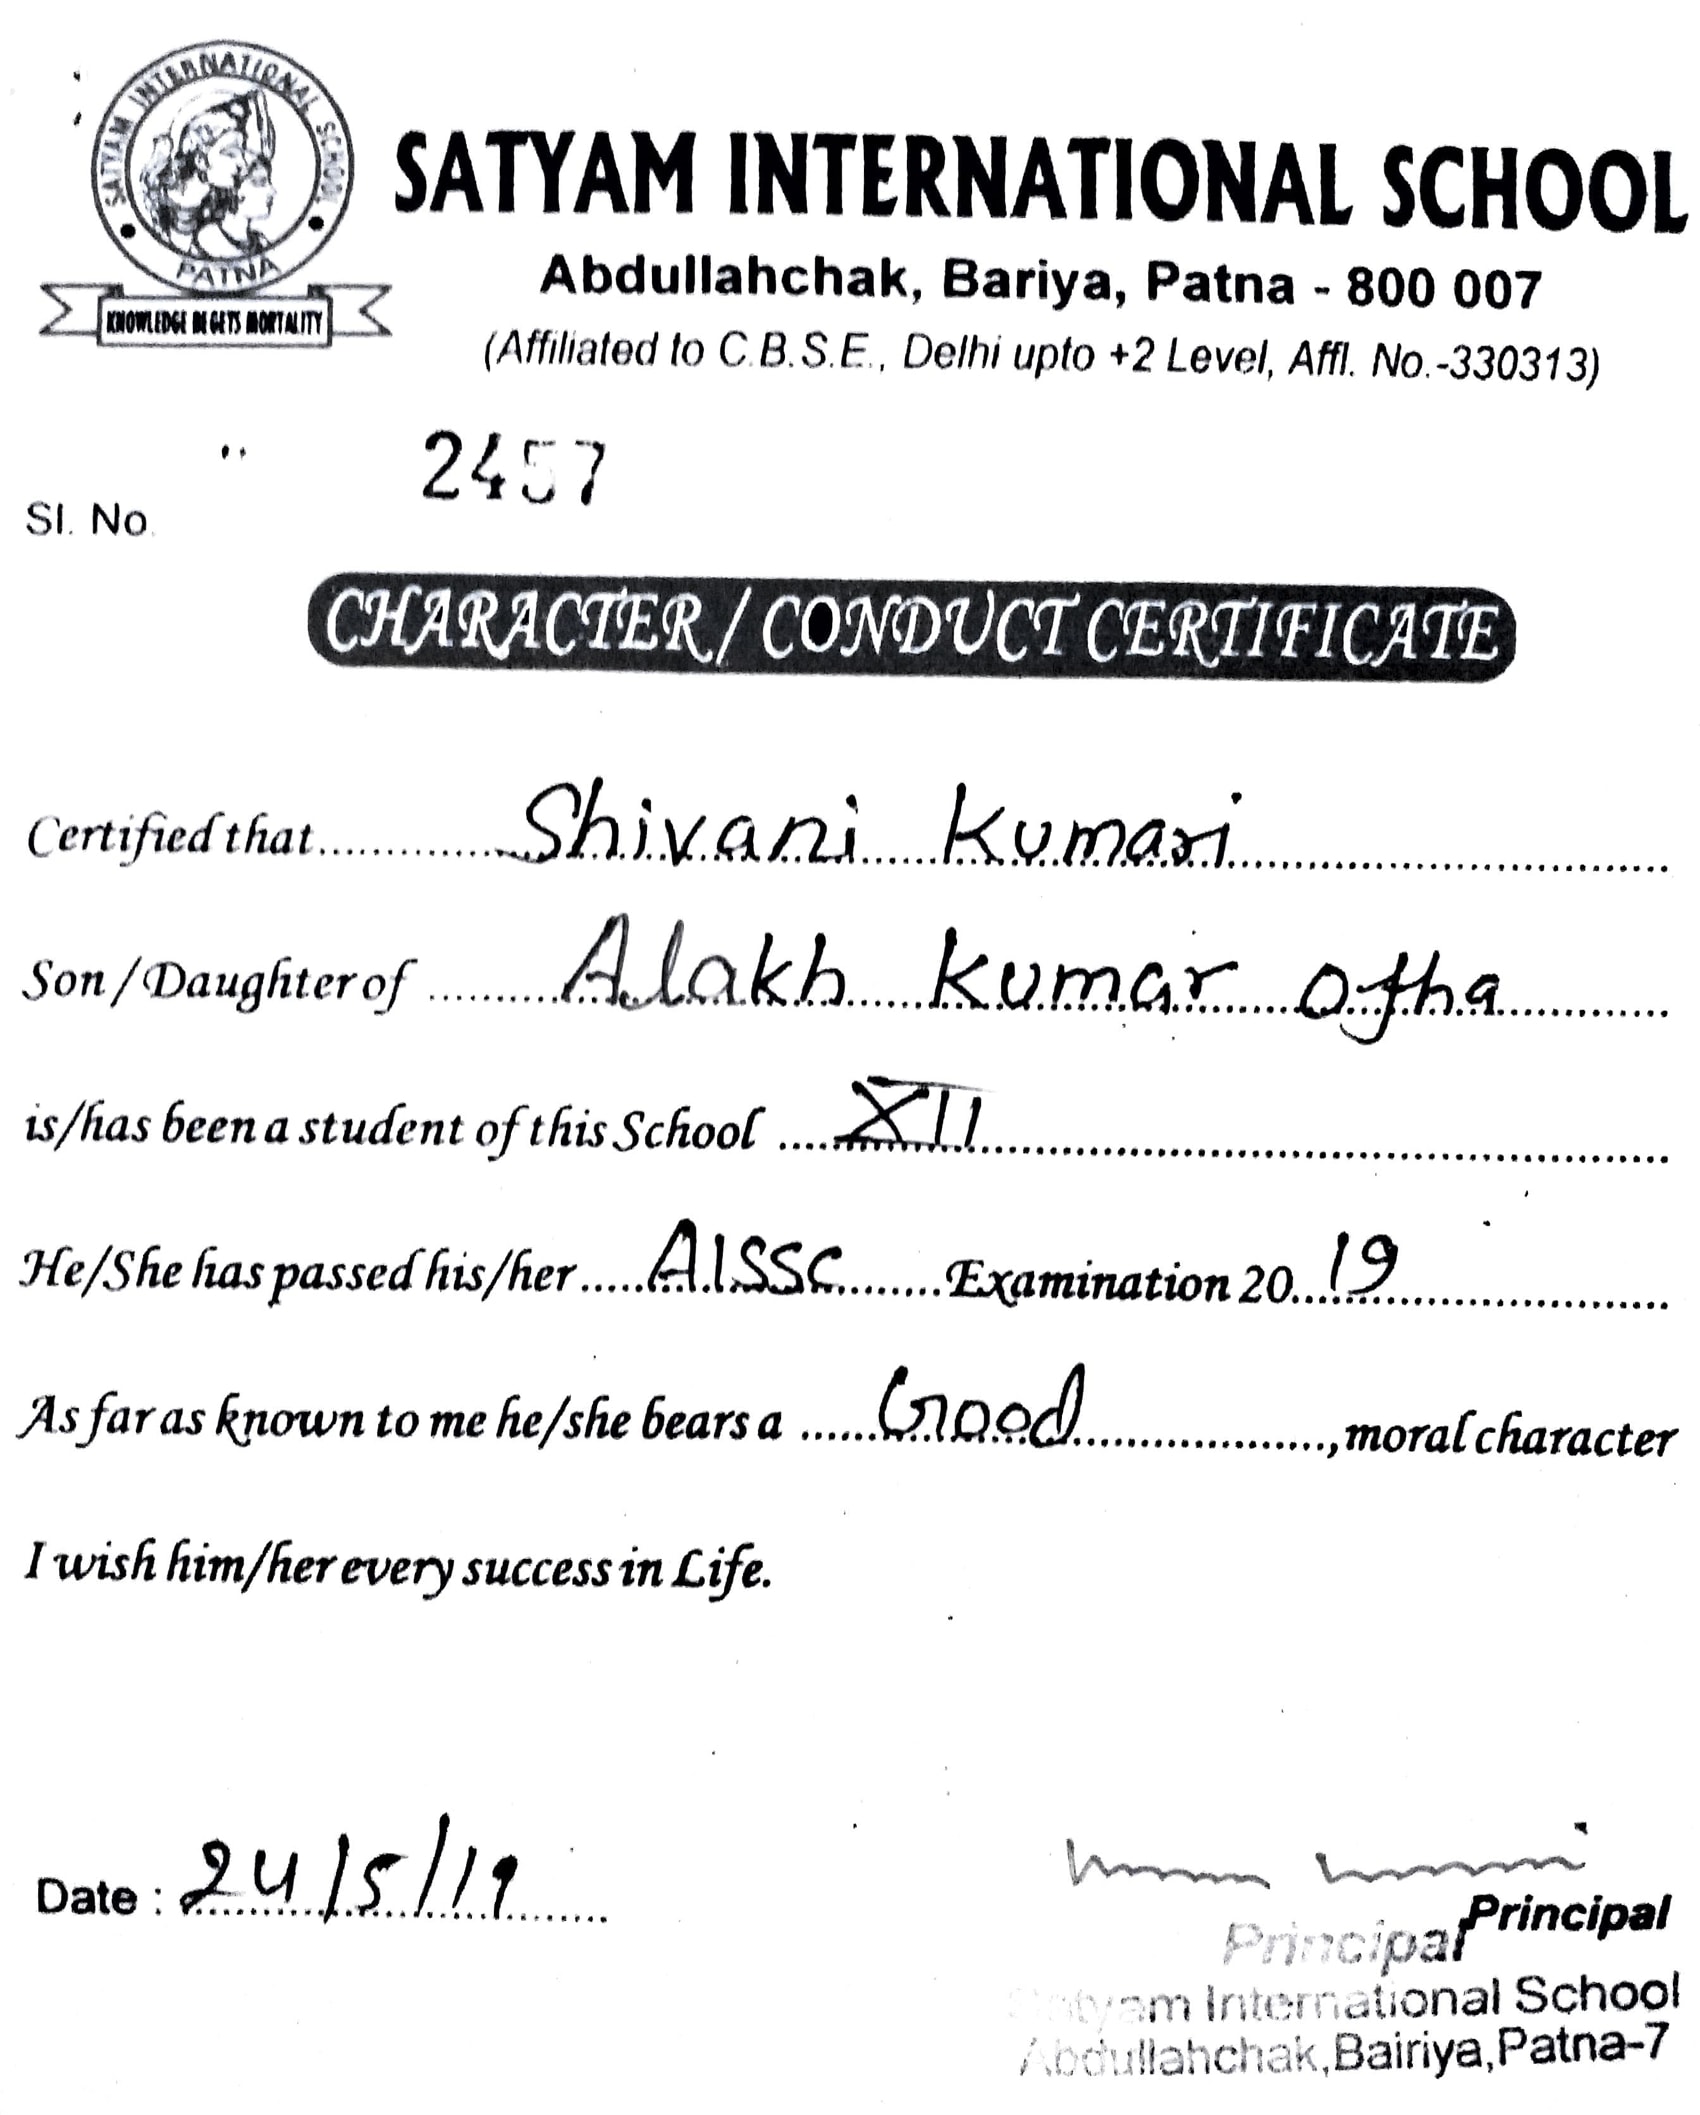 SATYAM INTERNATIONAL SCHOOL
PATNA
KNOWLEDGE BEGETS MORTALITY
SATYAM INTERNATIONAL SCHOOL
Abdullahchak, Bariya, Patna - 800 007
(Affiliated to C.B.S.E., Delhi upto +2 Level, Affl. No.-330313)
2457
Sl. No.
CHARACTER / CONDUCT CERTIFICATE
Certified that Shivani Kumari
Son / Daughter of Alakh Kumar Ojha
is/has been a student of this School XII
He/She has passed his/her AISSC Examination 2019
As far as known to me he/she bears a Good, moral character
I wish him/her every success in Life.
Date : 24/5/19
Principal
Principal
Satyam International School
Abdullahchak, Bairiya, Patna-7